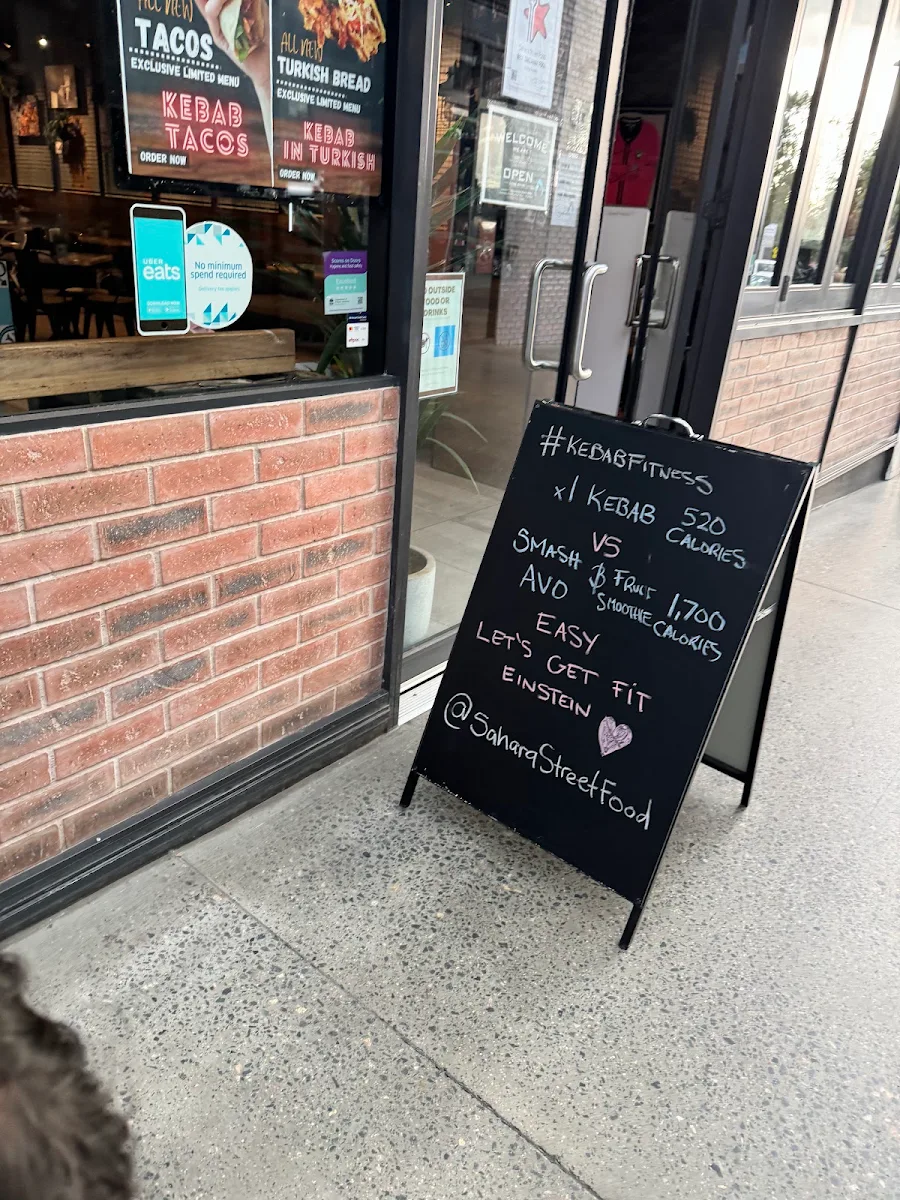 ALL NEW
TACOS
EXCLUSIVE LIMITED MENU
KEBAB
TACOS
ORDER NOW
ALL NEW
TURKISH BREAD
EXCLUSIVE LIMITED MENU
KEBAB
IN TURKISH
ORDER NOW
UBER
eats
No minimum
spend required
Delivery fee applies
Scores on Doors
WELCOME
OPEN
OUTSIDE
FOOD OR
DRINKS
#KEBABFITNESS
x1 KEBAB 520
CALORIES
VS
SMASH & FRUIT 1,700
AVO SMOOTHIE CALORIES
EASY
LET'S GET FiT
EINSTEIN
@SaharaStreetFood